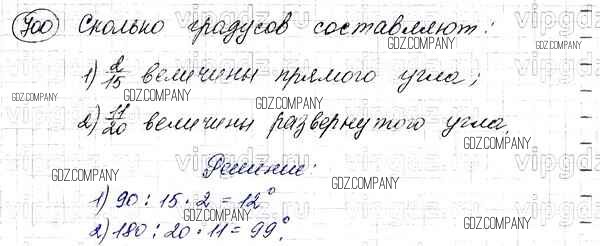 700 Сколько градусов составляют:
1) 2/15 величины прямого угла;
2) 11/20 величины развернутого угла.
Решение:
1) 90 : 15 · 2 = 12°
2) 180 : 20 · 11 = 99°.
GDZ.COMPANY
GDZ.COMPANY
GDZ.COMPANY
GDZ.COMPANY
GDZ.COMPANY
GDZ.COMPANY
GDZ.COMPANY
GDZ.COMPANY